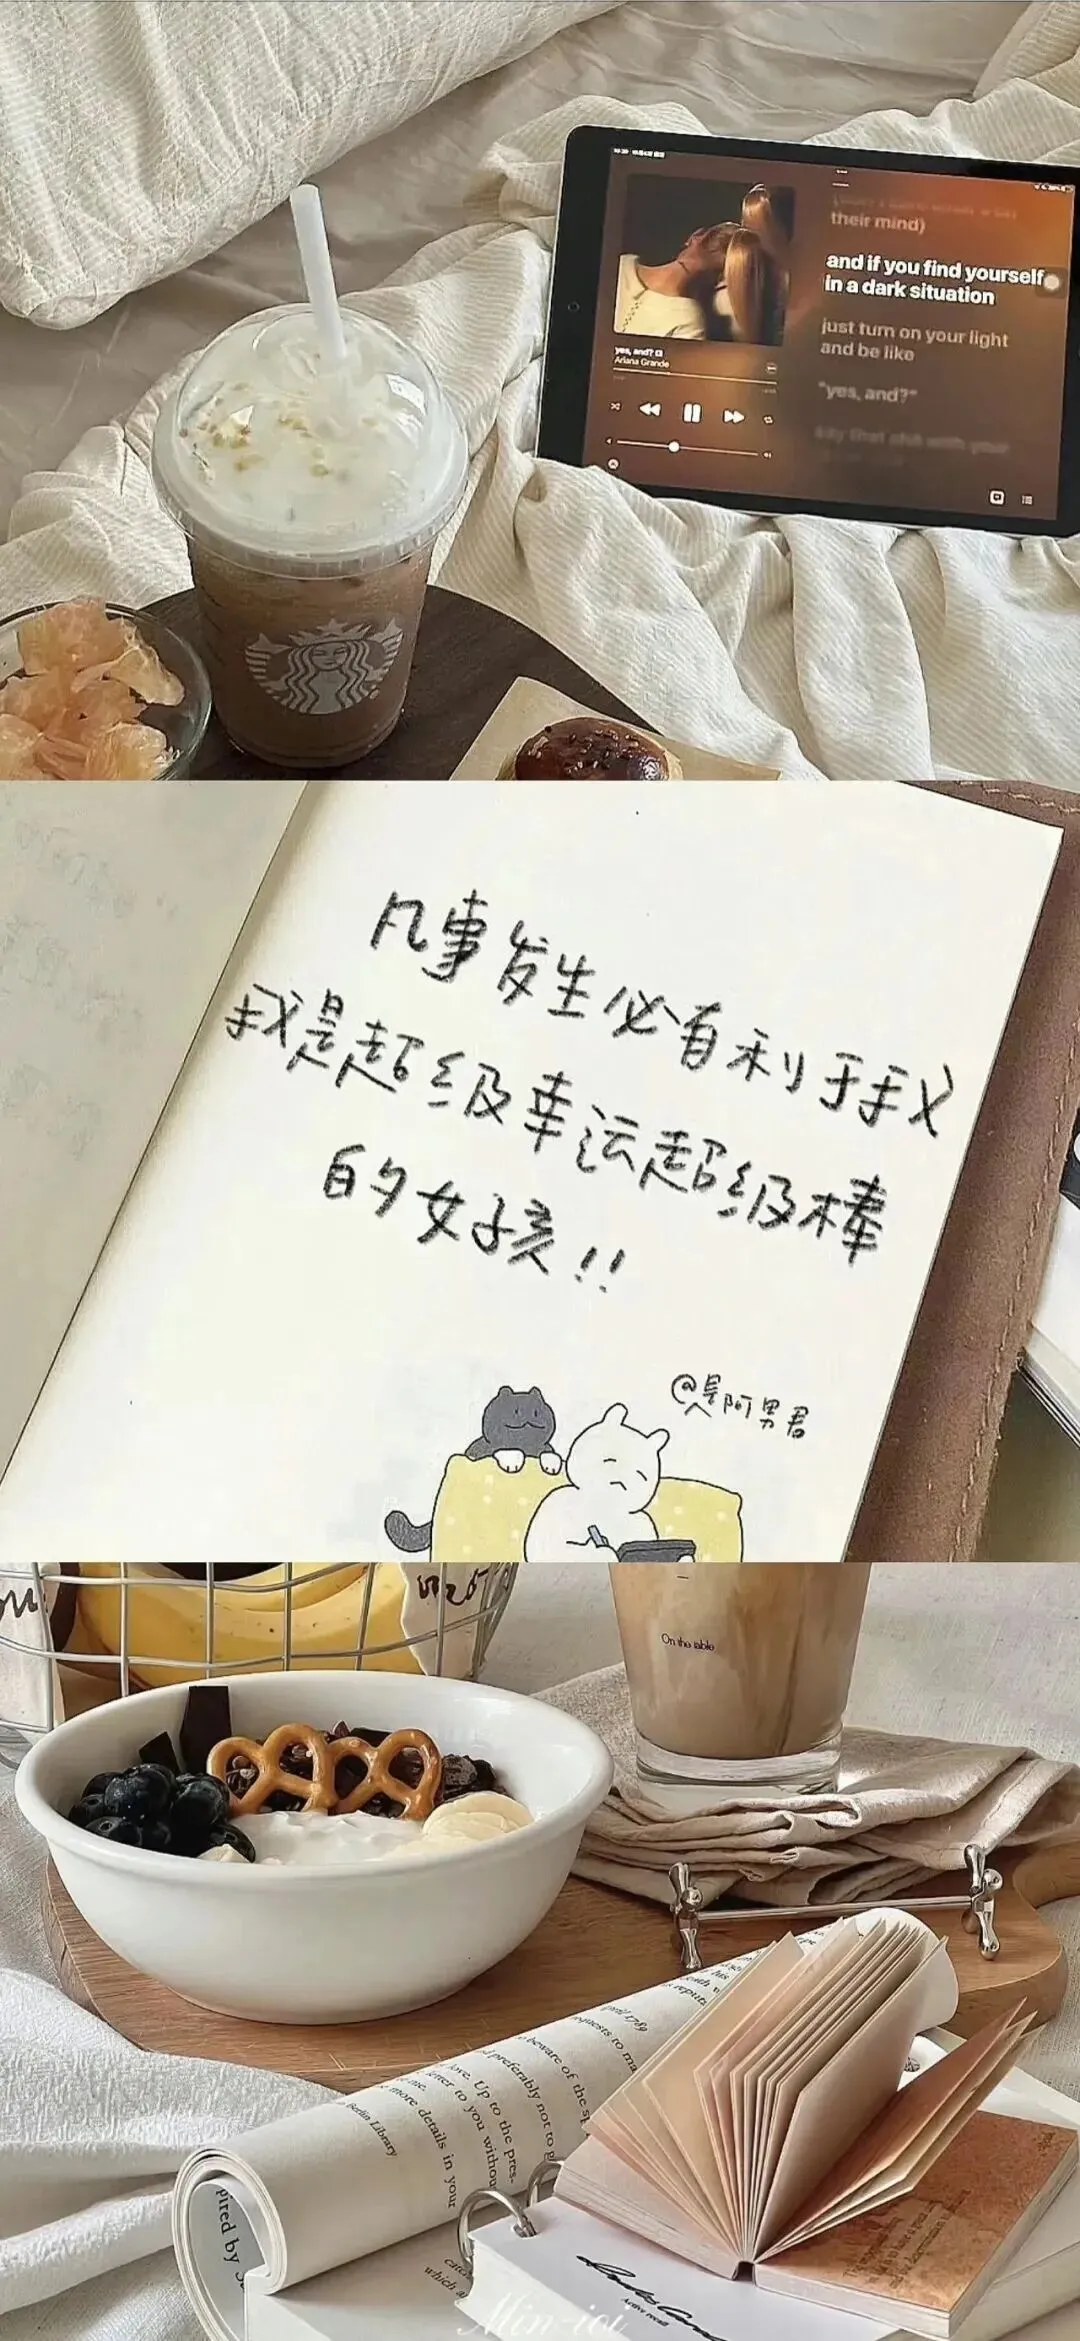 their mind)
and if you find yourself
in a dark situation
just turn on your light
and be like
"yes, and?"
yes, and?
Ariana Grande
凡事发生必有利于我
我是超级幸运超级棒
的女孩!!
@是阿男君
On the table
April 1789
requests to ma
beware of the sp
preferably not to g
love. Up to the pres-
letter to you without
me.
more details in your
Berlin Library
pired by
which a
Active recall
Min-ioi